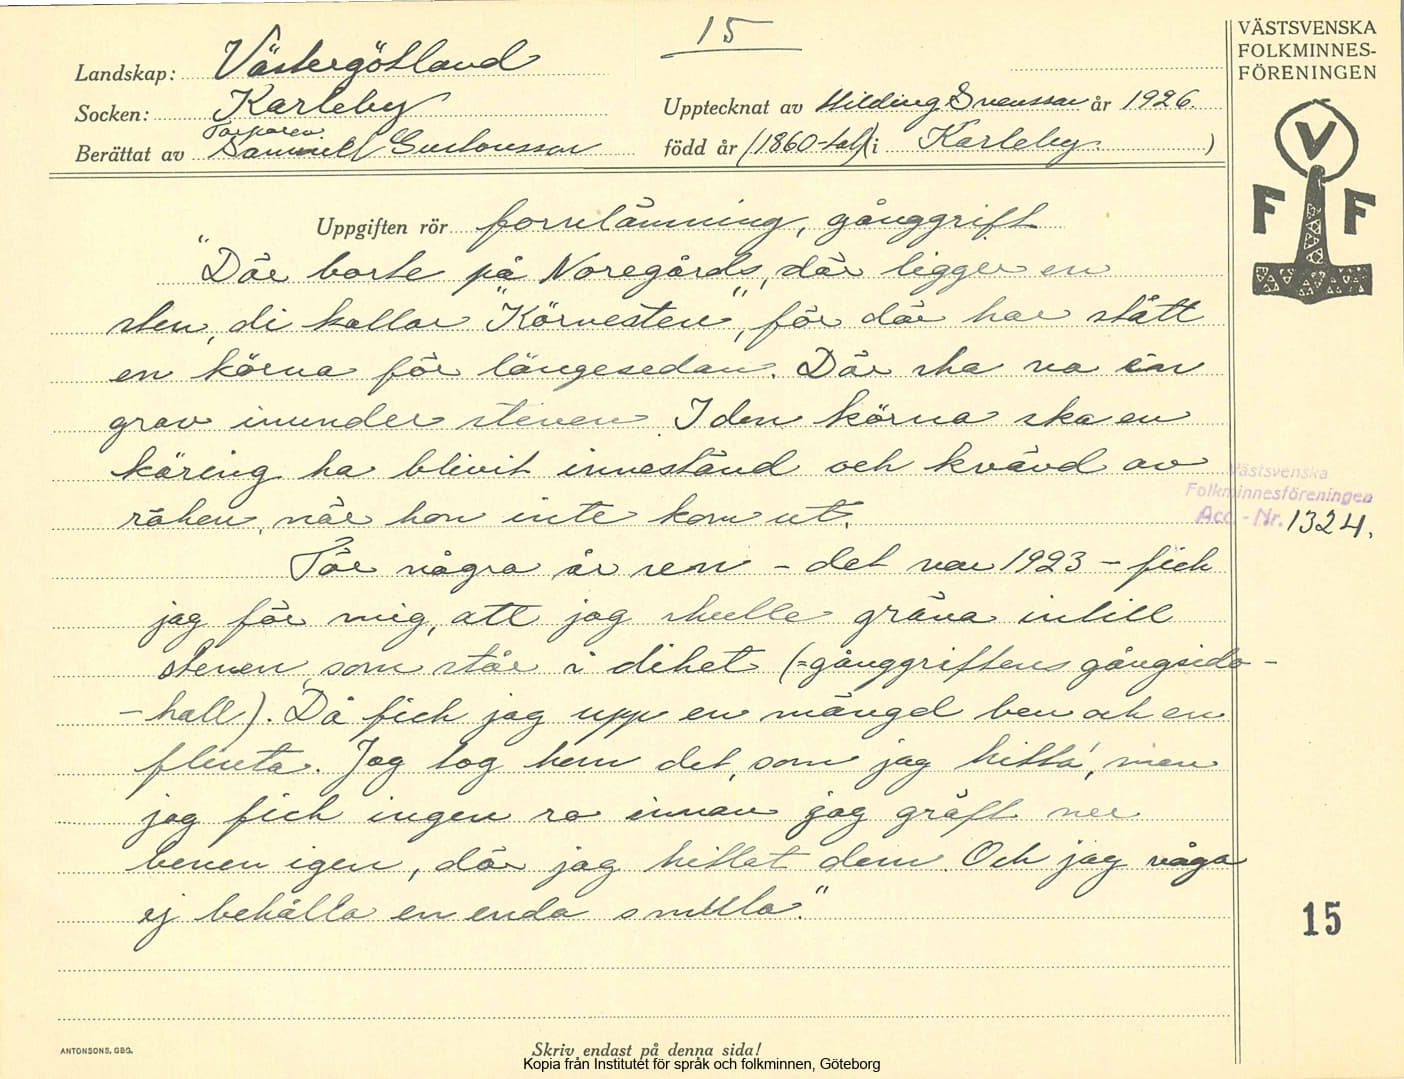 15
VÄSTSVENSKA
FOLKMINNES-
FÖRENINGEN
V
F F
Landskap: Västergötland
Socken: Karleby
Upptecknat av Hilding Svensson år 1926.
Torparen
Berättat av Samuel Gustavsson
född år (1860-tal) i Karleby. )
Uppgiften rör fornlämning, gånggrift
"Där borte på Noregårds, där ligger en
sten, di kallar "Körnesten", för där har stått
en körna för längesedan. Där ska va en
grav inunder stenen. I den körna ska en
käring ha blivit inneständ och kvävd av
röken, när hon inte kom ut.
För några år sen – det var 1923 – fick
jag för mig, att jag skulle gräva intill
stenen, som står i diket (=gånggriftens gångsido-
-hall). Då fick jag upp en mängd ben och en
flinta. Jag tog hem det, som jag hitta', men
jag fick ingen ro innan jag gräft ner
benen igen, där jag hittat dem. Och jag våga
ej behålla en enda smula."
Västsvenska
Folkminnesföreningen
Acc.-Nr. 1324.
15
ANTONSONS, GBG.
Skriv endast på denna sida!
Kopia från Institutet för språk och folkminnen, Göteborg